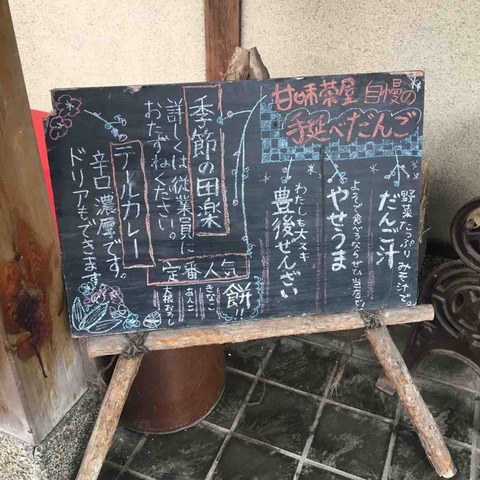 甘味茶屋 自慢の
手延べだんご
野菜たっぷりみそ汁で。
だんご汁
よそで食べるならぜひ当店で!
やせうま
わたしも大スキ
豊後ぜんざい
季節の田楽
詳しくは従業員に
おたずねください。
テールカレー
辛口濃厚です。
ドリアもできます
定番人気
餅!!
きなこ
あんこ
大根おろし